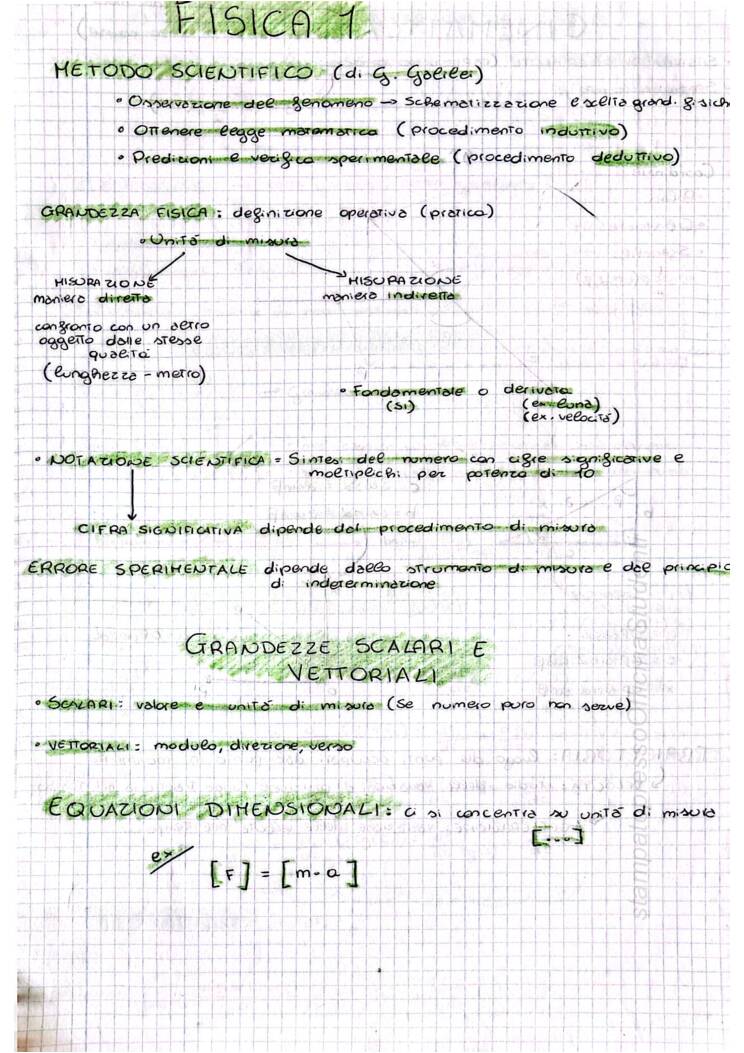 FISICA 1
METODO SCIENTIFICO (di G. Galilei)
• Osservazione del fenomeno → Schematizzazione e scelta grand. fisich
• Ottenere legge matematica (procedimento induttivo)
• Predizioni e verifica sperimentale (procedimento deduttivo)
GRANDEZZA FISICA: definizione operativa (pratica)
• Unità di misura
MISURAZIONE
maniera diretta
confronto con un altro
oggetto dalle stesse
qualità
(lunghezza - metro)
MISURAZIONE
maniera indiretta
• Fondamentale o derivata
(SI)
(ex. luna)
(ex. velocità)
• NOTAZIONE SCIENTIFICA = Sintesi del numero con cifre significative e
moltiplichi per potenza di 10
CIFRA SIGNIFICATIVA dipende dal procedimento di misura
ERRORE SPERIMENTALE dipende dallo strumento di misura e dal principio
di indeterminazione
GRANDEZZE SCALARI E
VETTORIALI
• SCALARI: valore e unità di misura (Se numero puro non serve)
• VETTORIALI: modulo, direzione, verso
EQUAZIONI DIMENSIONALI: ci si concentra su unità di misura
[...]
ex
[F] = [m · a]
stampatopressoOfficinaStudenti